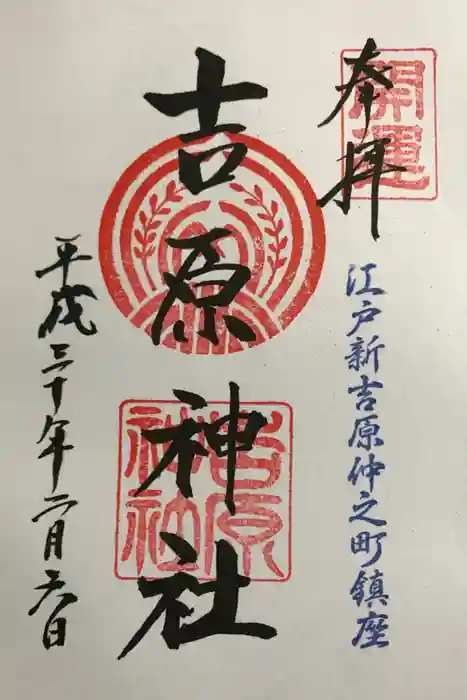 奉拝
開運
江戸新吉原仲之町鎮座
吉原神社
吉原神社
平成三十年二月六日